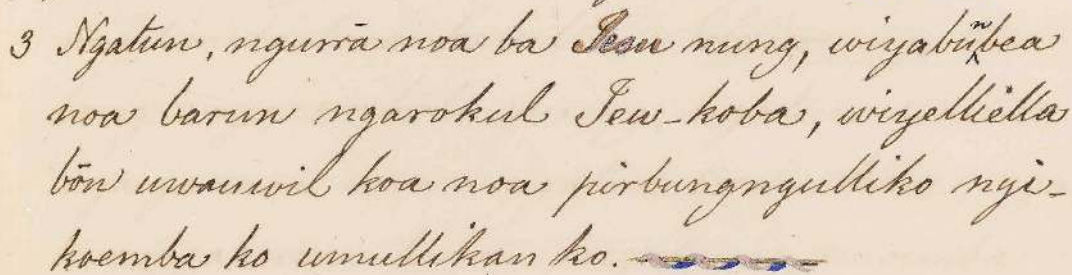 3 Ngatun, ngurrā noa ba Jesu nung, wiyabūnbea
noa barun ngarokul Jew-koba, wiyelliélla
bōn uwauwil koa noa pirbungngulliko ngi-
koemba ko umullikan ko.